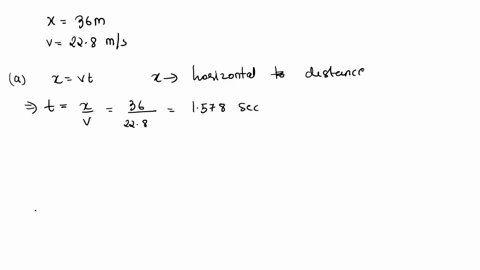 x = 36m
v = 22.8 m/s
(a) x = vt x → horizontal distance
⇒ t = x/v = 36/22.8 = 1.578 sec